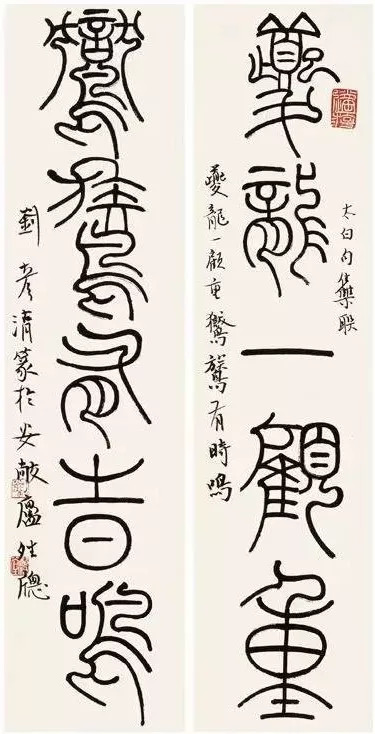 太白句集联
夔龍一顧重
夔龍一顧重鸑鷟有時鳴
鸑鷟有時鳴
劉彦清篆於安敞廬